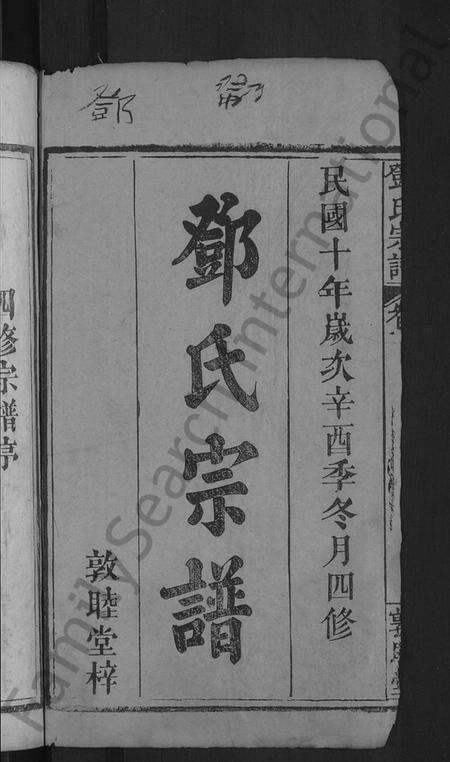 鄧
民國十年歲次辛酉季冬月四修
鄧氏宗譜
敦睦堂梓
鄧氏宗譜
敦睦堂
四修宗譜序
FamilySearch International